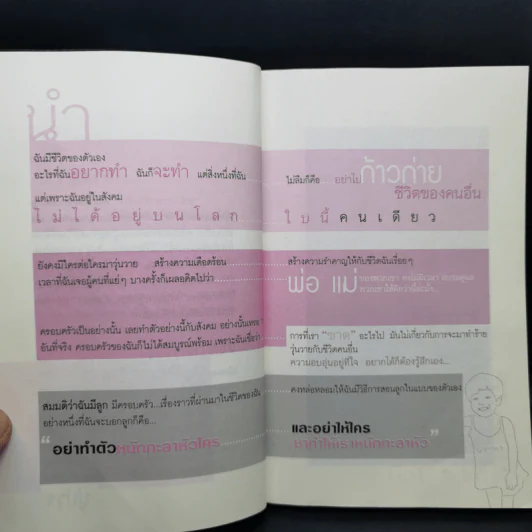 นำ
ฉันมีชีวิตของตัวเอง
อะไรที่ฉันอยากทำ ฉันก็จะทำ แต่สิ่งหนึ่งที่ฉัน
แต่เพราะฉันอยู่ในสังคม
ไม่ได้อยู่บนโลก
ยังคงมีใครต่อใครมาวุ่นวาย สร้างความเดือดร้อน
เวลาที่ฉันเจอผู้คนที่แย่ๆ บางครั้งก็เผลอคิดไปว่า
ครอบครัวเป็นอย่างนั้น เลยทำตัวอย่างนี้กับสังคม อย่างนั้นเหรอ
อันที่จริง ครอบครัวของฉันก็ไม่ได้สมบูรณ์พร้อม เพราะฉันเชื่อว่า
สมมติว่าฉันมีลูก มีครอบครัว...เรื่องราวที่ผ่านมาในชีวิตของฉัน
อย่างหนึ่งที่ฉันจะบอกลูกก็คือ...
“อย่าทำตัวหนักกะลาหัวใคร
ไม่ลืมก็คือ อย่าไปก้าวก่าย
ชีวิตของคนอื่น
ใบนี้คนเดียว
สร้างความรำคาญให้กับชีวิตฉันเรื่อยๆ
พ่อ แม่
การที่เรา "ขาด" อะไรไป มันไม่เกี่ยวกับการจะมาทำร้าย
วุ่นวายกับชีวิตคนอื่น
ความอบอุ่นอยู่ที่ใจ อยากได้ก็ต้องรู้สึกเอง...
คงหล่อหลอมให้ฉันมีวิธีการสอนลูกในแบบของตัวเอง
และอย่าให้ใคร
มาทำให้เราหนักกะลาหัว”